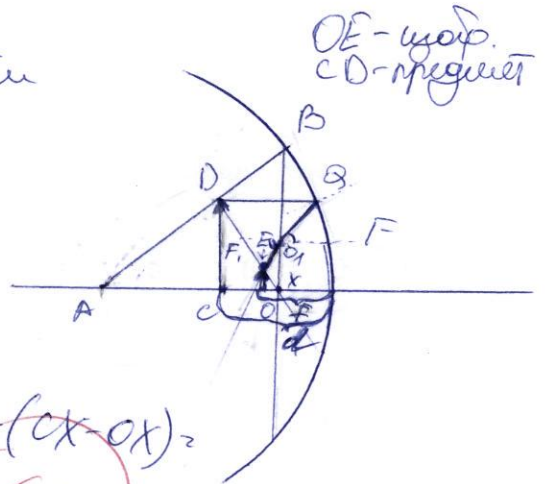 OE - изобр.
CD - предмет
B
D
Q
F
E
O₁
F₁
X
A
C
O
F
d
(CX-OX)=